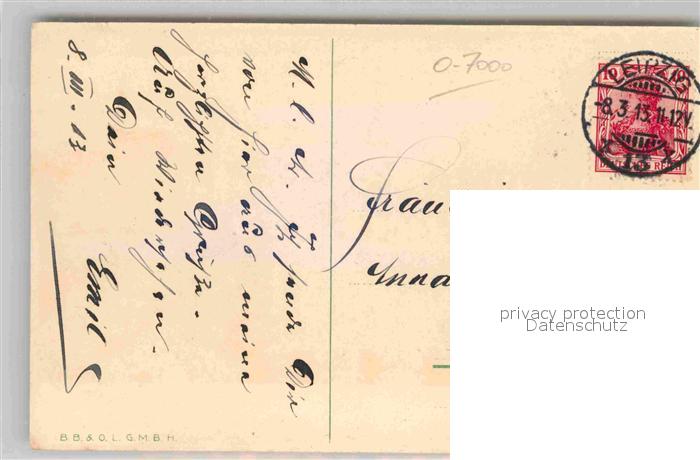 M. l. Kl. Ich sende Dir
von hier aus meine
herzlichsten Grüße.
Auf Wiedersehen.
Dein
Emil
8. III. 13
0-7000
LEIPZIG
-8.3.13.11-12V.
13
10
Fräu
Anna
privacy protection
Datenschutz
B.B. & O.L. G.M.B.H.